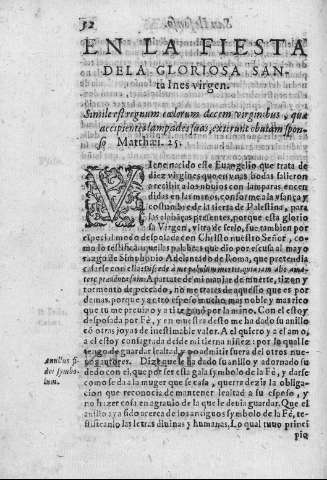 32
EN LA FIESTA
DELA GLORIOSA SAN-
ta Ines virgen.
Simile est regnum cælorum decem virginibus, quæ
accipientes lampades suas, exierunt obuiam spon-
so Matthæi. 25.
VIene nacido este Euangelio que trata de
diez virgines que en vnas bodas salieron
a recibir a los nouios con lamparas encen
didas en las manos, conforme a la vsança y
costumbre de la tierra de Palestina, para
las alabãças presentes, porque esta glorio
sa Virgen, vltra de serlo, fue tambien por
especial modo desposada con Christo nuestro Señor, co
mo lo testificã aquellas palabras que dio por escusa al mayo
razgo de Simphonio Adelantado de Roma, que pretendia
casarse con ella
de muerte, tizon y
tormento de peccado, no me trates de amores que es por
demas, porque ya otro esposo mucho mas noble y mas rico
que tu me preuino y a ti te ganò por la mano. Con el estoy
desposada por Fê, y en muestra desto me ha dado su anill
cõ otros joyas de inestimable valor. A el quiero y a el amo,
a el estoy consagrada desde mi tierna niñez: por lo qual le
tengo de guardar lealtad, y posponer fuera del otros nue-
annullus fi
dei symbo-
lum.
uos autores. Dize que le ha dado su anillo y adornado su
dedo con el, que por ser esta gala symbolo de la Fê, y darse
como se da a la muger que se casa, querra dezir la obliga
cion que reconocia de mantener lealtad a su esposo, y
no hazer cosa en agrauio de la que le deuia guardar. Que el
anillo aya sido acerca de los antiguos symbolo de la Fê, tes
tificanlo las letras diuinas y humanas. Lo qual tuuo princi
pio